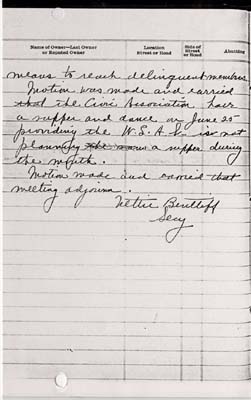 Name of Owner—Last Owner or Reputed Owner
Location Street or Road
Side of Street or Road
Abutting
means to reach delinquent members.
Motion was made and carried
that the Civic Association have
a supper and dance on June 25
providing the W.S.A. is not
planning a supper during
the month.
Motion made and carried that
meeting adjourn.
Nettie
Secy